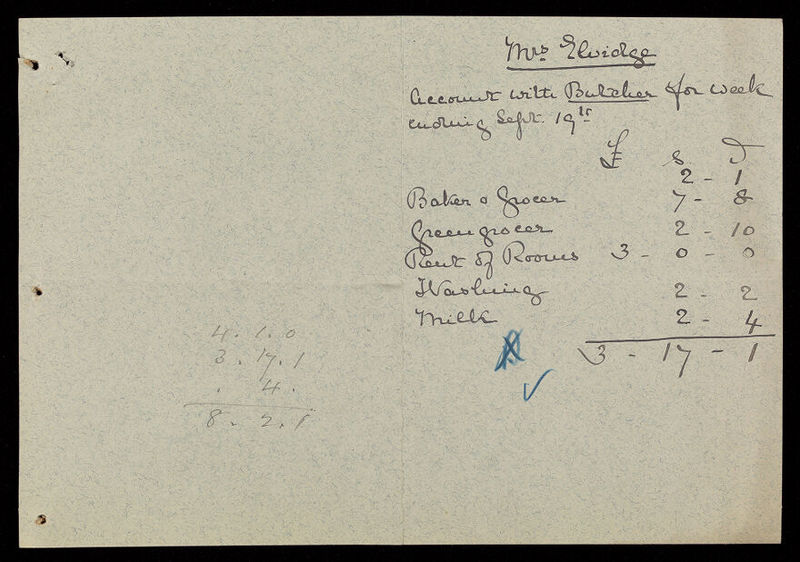 Mrs Elvidge
Account with Butcher for week
ending Sept. 19th
£ s D
2 - 1
Baker & Grocer 7 - 8
Greengrocer 2 - 10
Rent of Rooms 3 - 0 - 0
Washing 2 - 2
Milk 2 - 4
3 - 17 - 1
4 . 1 . 0
3 . 17 . 1
. 4 .
8 . 2 . 1